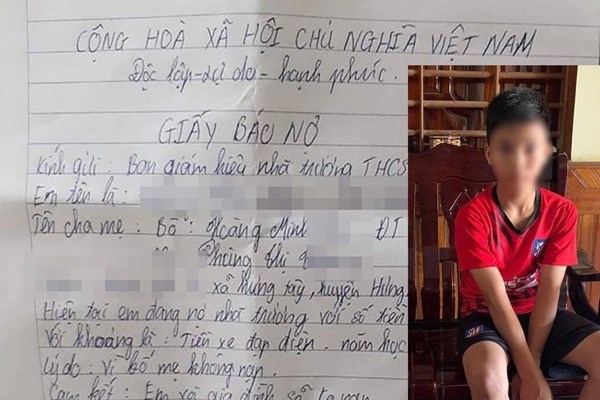 CỘNG HOÀ XÃ HỘI CHỦ NGHĨA VIỆT NAM
Độc lập - tự do - hạnh phúc.
GIẤY BÁO NỢ
Kính gửi : Ban giám hiệu nhà trường THCS
Em tên là :
Tên cha mẹ : Bố : Hoàng Minh ĐT
Phùng Thị
xã Hưng Tây, huyện Hưng
Hiện tại em đang nợ nhà trường với số tiền
Với khoảng là : Tiền xe đạp điện . năm học
Lý do : vì bố mẹ không nạp.
Cam kết : Em và gia đình sẽ